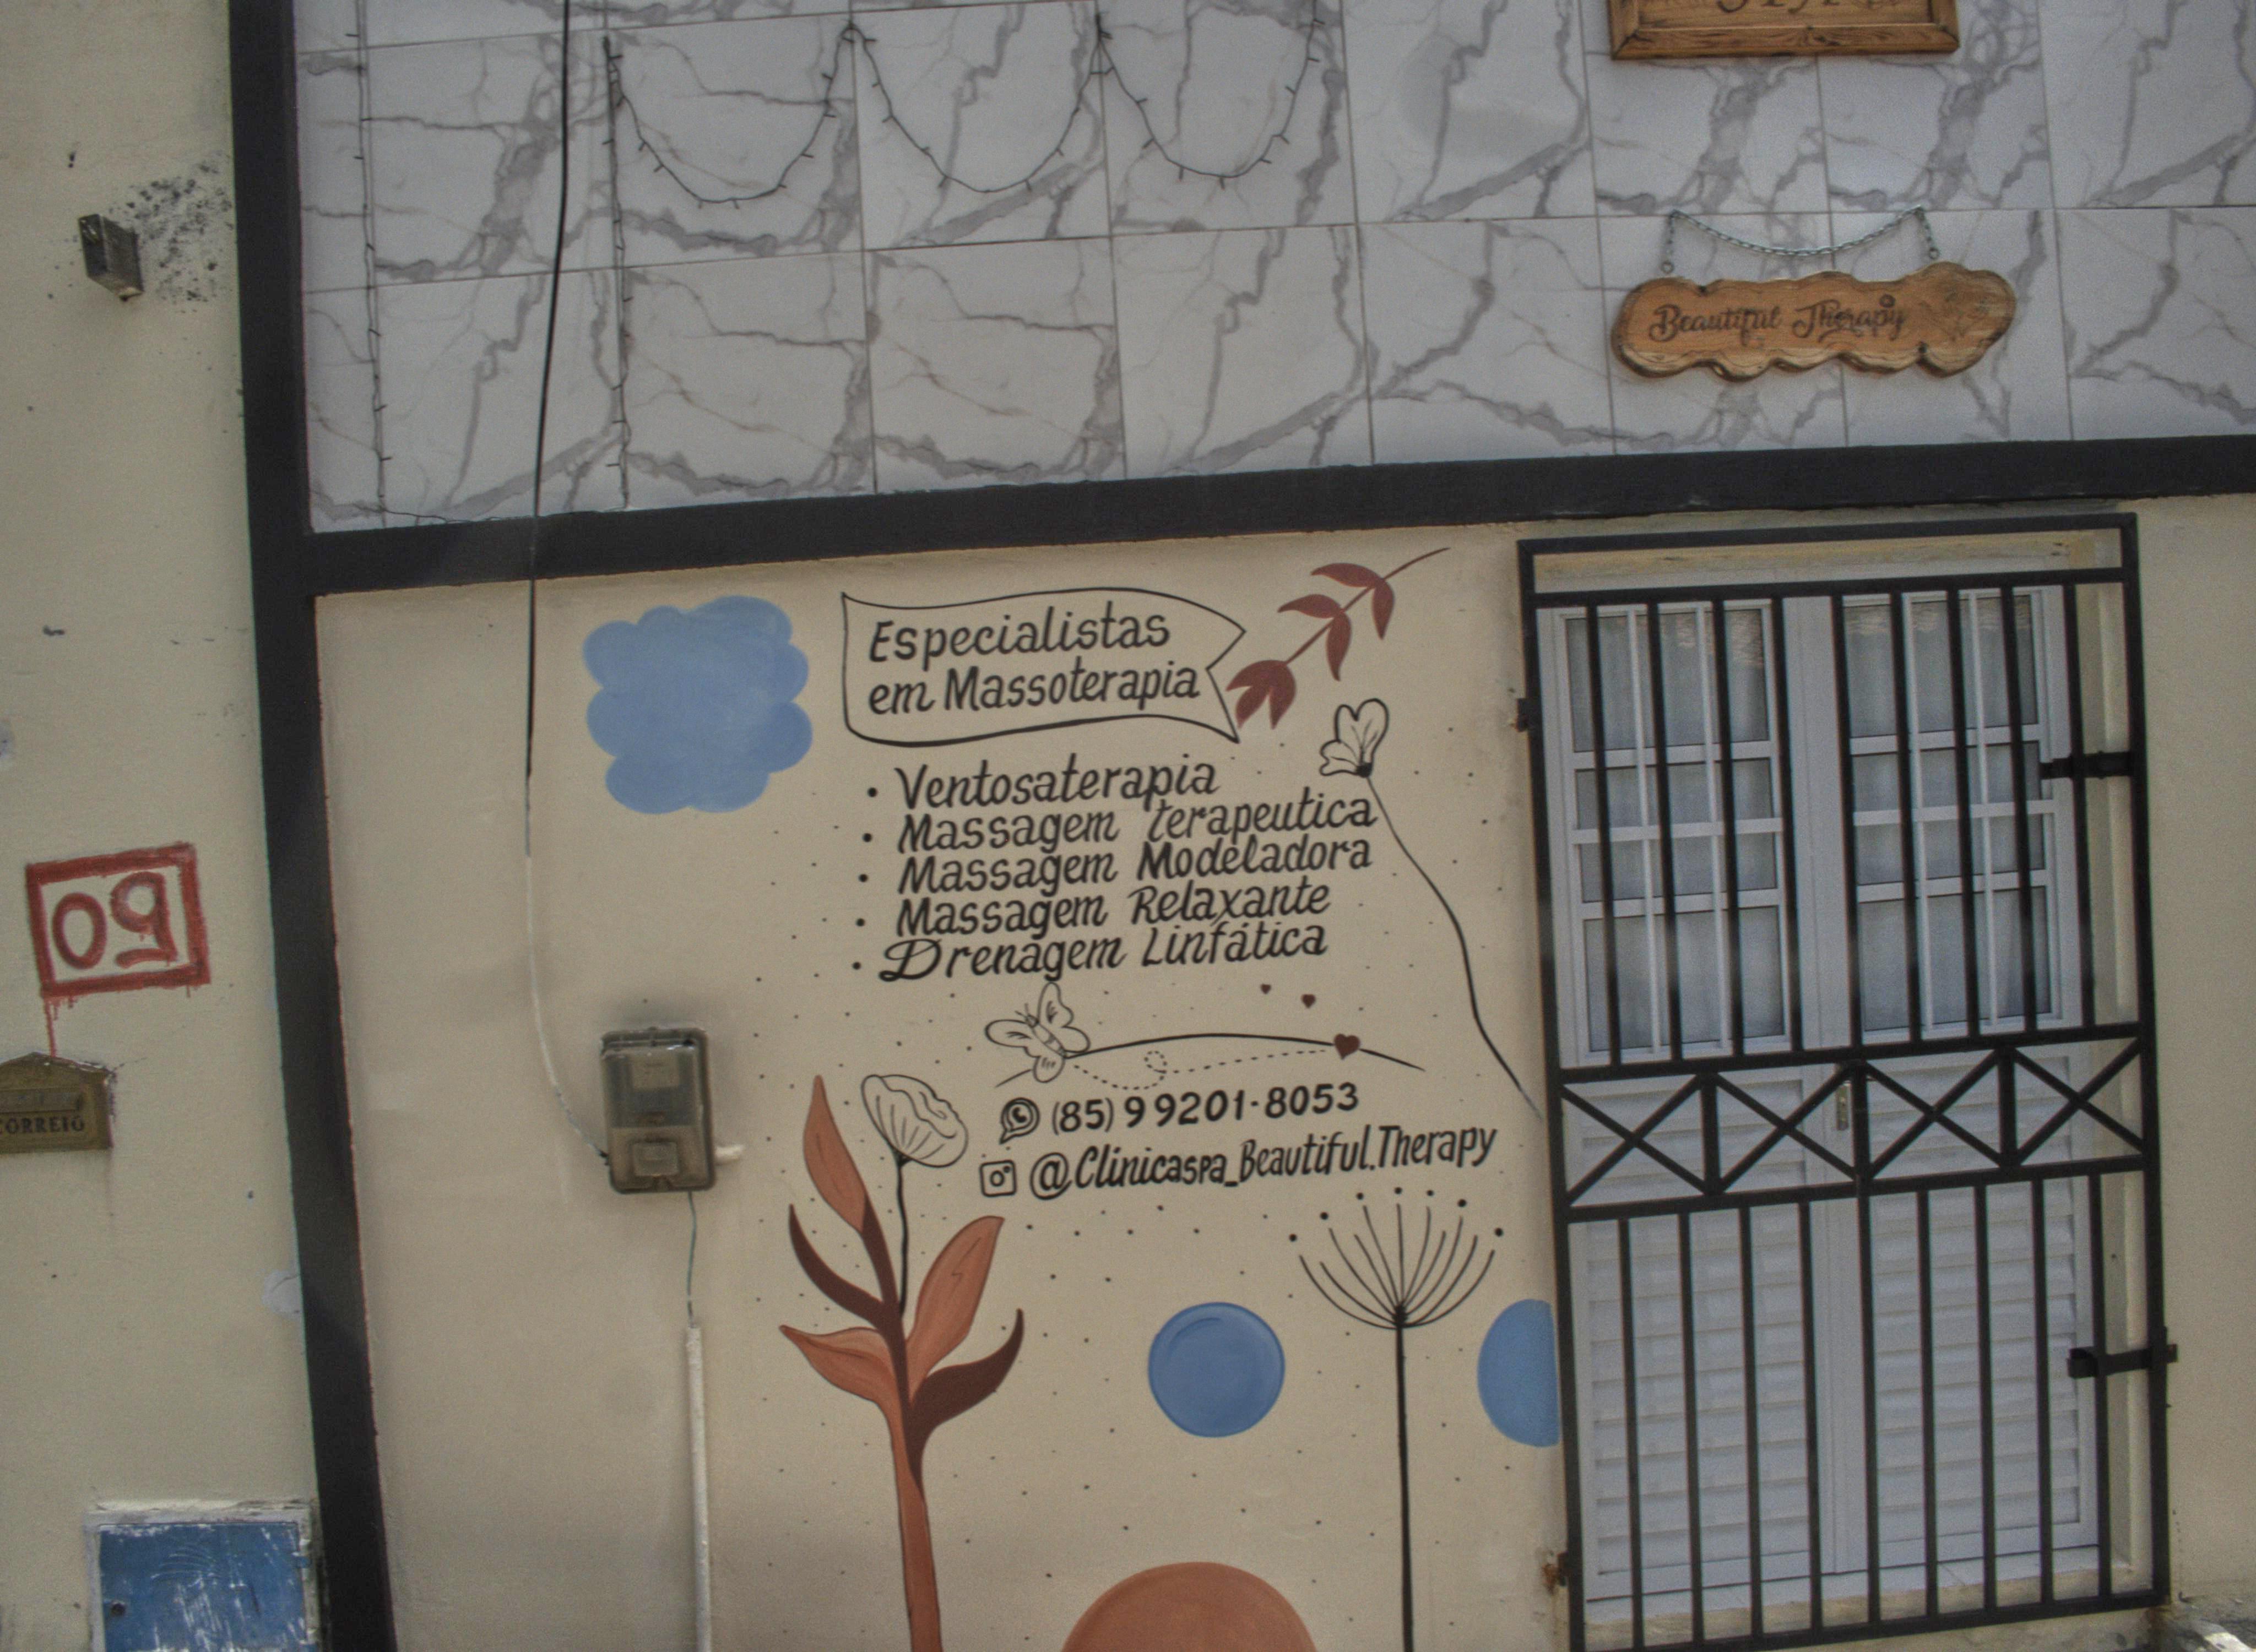 Beautiful Therapy
Especialistas
em Massoterapia
• Ventosaterapia
• Massagem terapeutica
• Massagem Modeladora
• Massagem Relaxante
• Drenagem Linfática
(85) 99201-8053
@Clinicaspa_Beautiful.Therapy
09
CORREIO